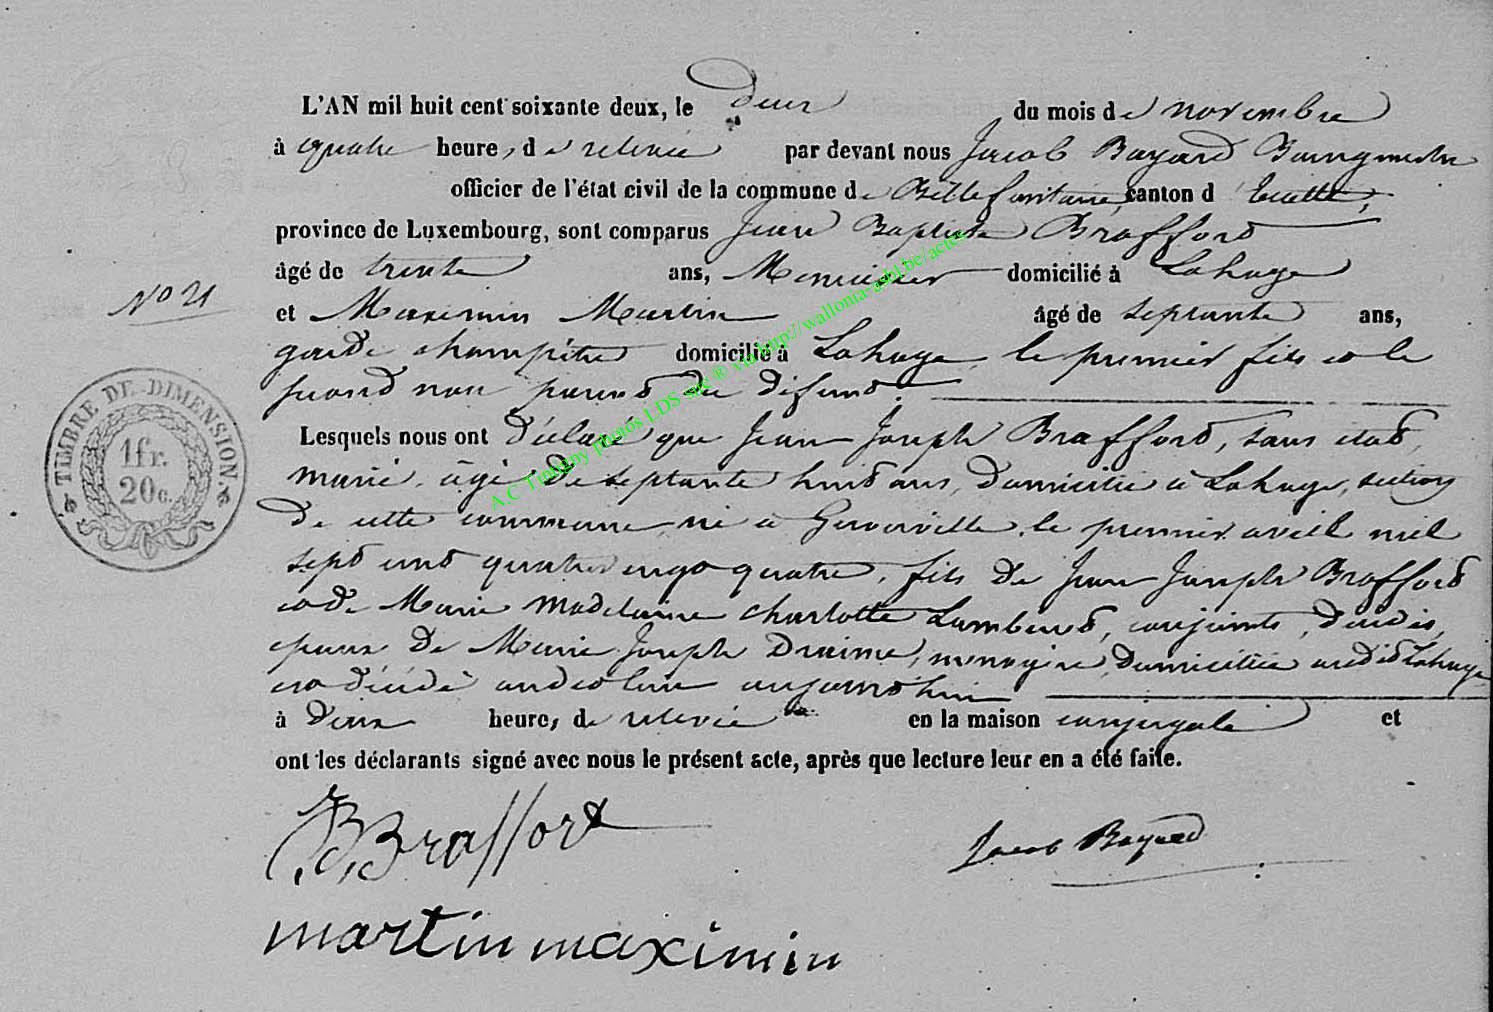 L'AN mil huit cent soixante deux, le deux du mois de novembre
à quatre heure, de relevée par devant nous Jacob Bayard Bourgmestre
officier de l'état civil de la commune de Bellefontaine, canton d'Etalle,
province de Luxembourg, sont comparus Jean Baptiste Braffort
âgé de trente ans, Menuisier domicilié à Lahage
et Maximin Martin âgé de septante ans,
N° 21
garde champêtre domicilié à Lahage, le premier fils et le
second non parent du défunt.
Lesquels nous ont déclaré que Jean Joseph Braffort, sans état,
marié, âgé de septante huit ans, domicilié à Lahage, section
de cette commune né à Gérouville, le premier avril mil
sept cent quatre vingt quatre, fils de Jean Joseph Braffort
et de Marie Madelaine Charlotte Lambert, conjoints, décédés,
époux de Marie Joseph Draime, ménagère, domiciliée audit Lahage
est décédé audit lieu aujourd'hui
à deux heure, de relevée en la maison conjugale et
ont les déclarants signé avec nous le présent acte, après que lecture leur en a été faite.
TIMBRE DE DIMENSION.
1 fr.
20 c.
A.C Tintigny photos LDS site ® via http://wallonia-asbl.be/actes
J.B. Braffort
Jacob Bayard
martin maximin